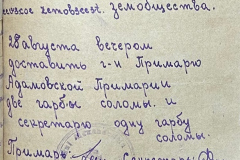 земобщества.
28 августа вечером
доставить г-н Примарю
Адамовской Примарии
две гарбы соломы. и
секретарю одну гарбу
соломы.
Примарь